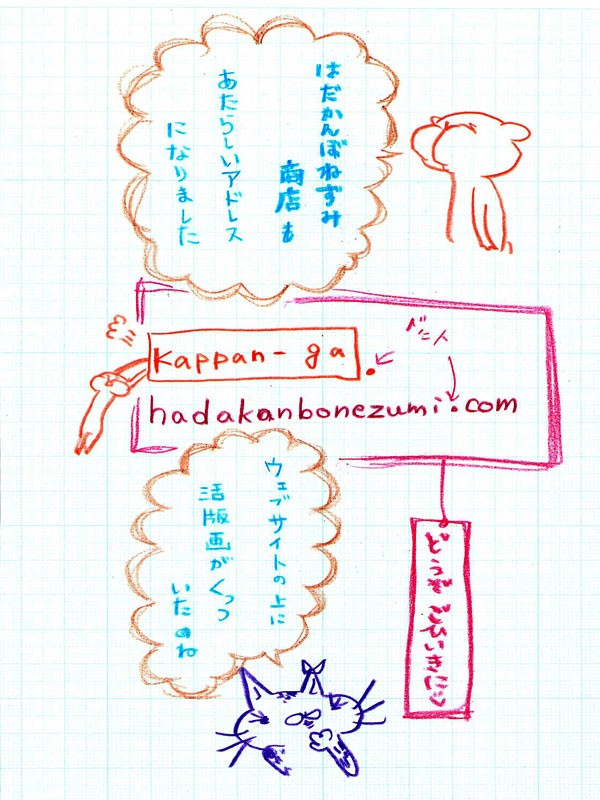 はだかんぼねずみ
商店も
あたらしいアドレス
になりました
kappan-ga.
hadakanbonezumi.com
ウェブサイトの上に
活版画がくっつ
いたのね
どうぞごひいきに♡